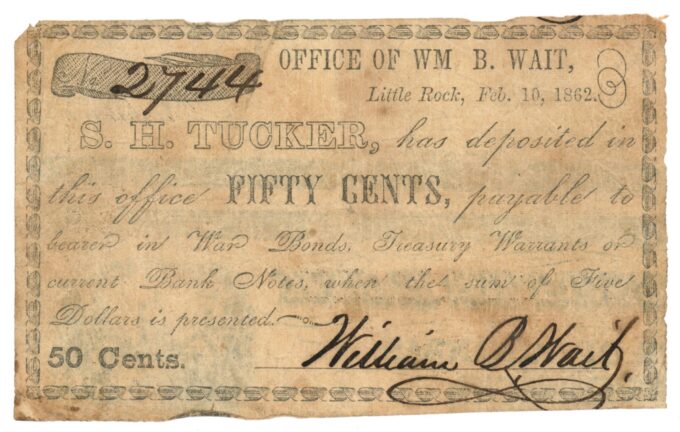 No. 2744
OFFICE OF WM B. WAIT,
Little Rock, Feb. 10, 1862.
S. H. TUCKER, has deposited in
this office FIFTY CENTS, payable to
bearer in War Bonds, Treasury Warrants or
current Bank Notes, when the sum of Five
Dollars is presented.
50 Cents.
William B. Wait